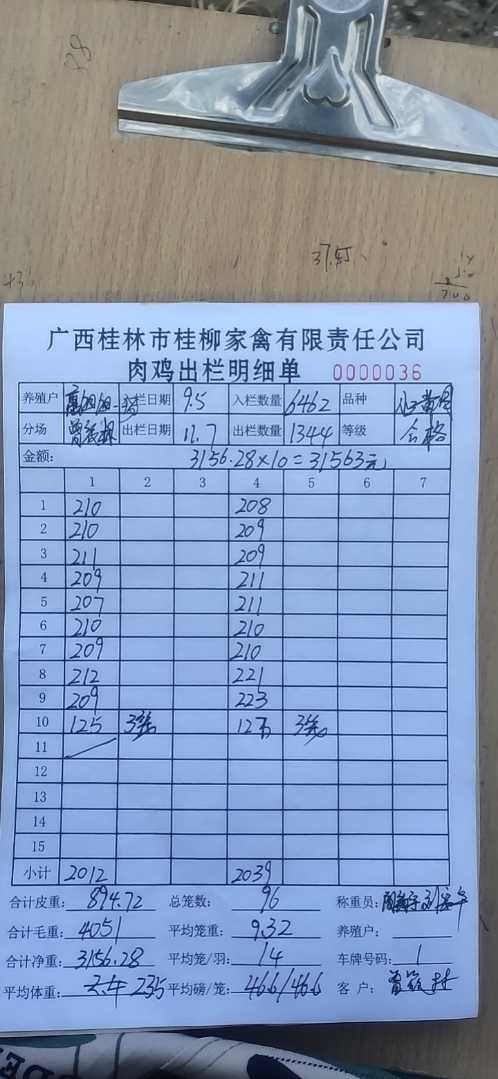 广西桂林市桂柳家禽有限责任公司
肉鸡出栏明细单 0000036
养殖户 入栏日期 9.5 入栏数量 6462 品种
分场 出栏日期 11.7 出栏数量 1344 等级 合格
金额: 3156.28×10=31563元
1 2 3 4 5 6 7
1 210 208
2 210 209
3 211 209
4 209 211
5 207 211
6 210 210
7 209 210
8 212 221
9 209 223
10 125 3笼 127 3笼
11
12
13
14
15
小计 2012 2039
合计皮重: 894.72 总笼数: 96 称重员:
合计毛重: 4051 平均笼重: 9.32 养殖户:
合计净重: 3156.28 平均笼/羽: 14 车牌号码: 1
平均体重: 235 平均磅/笼: 466/466 客户: